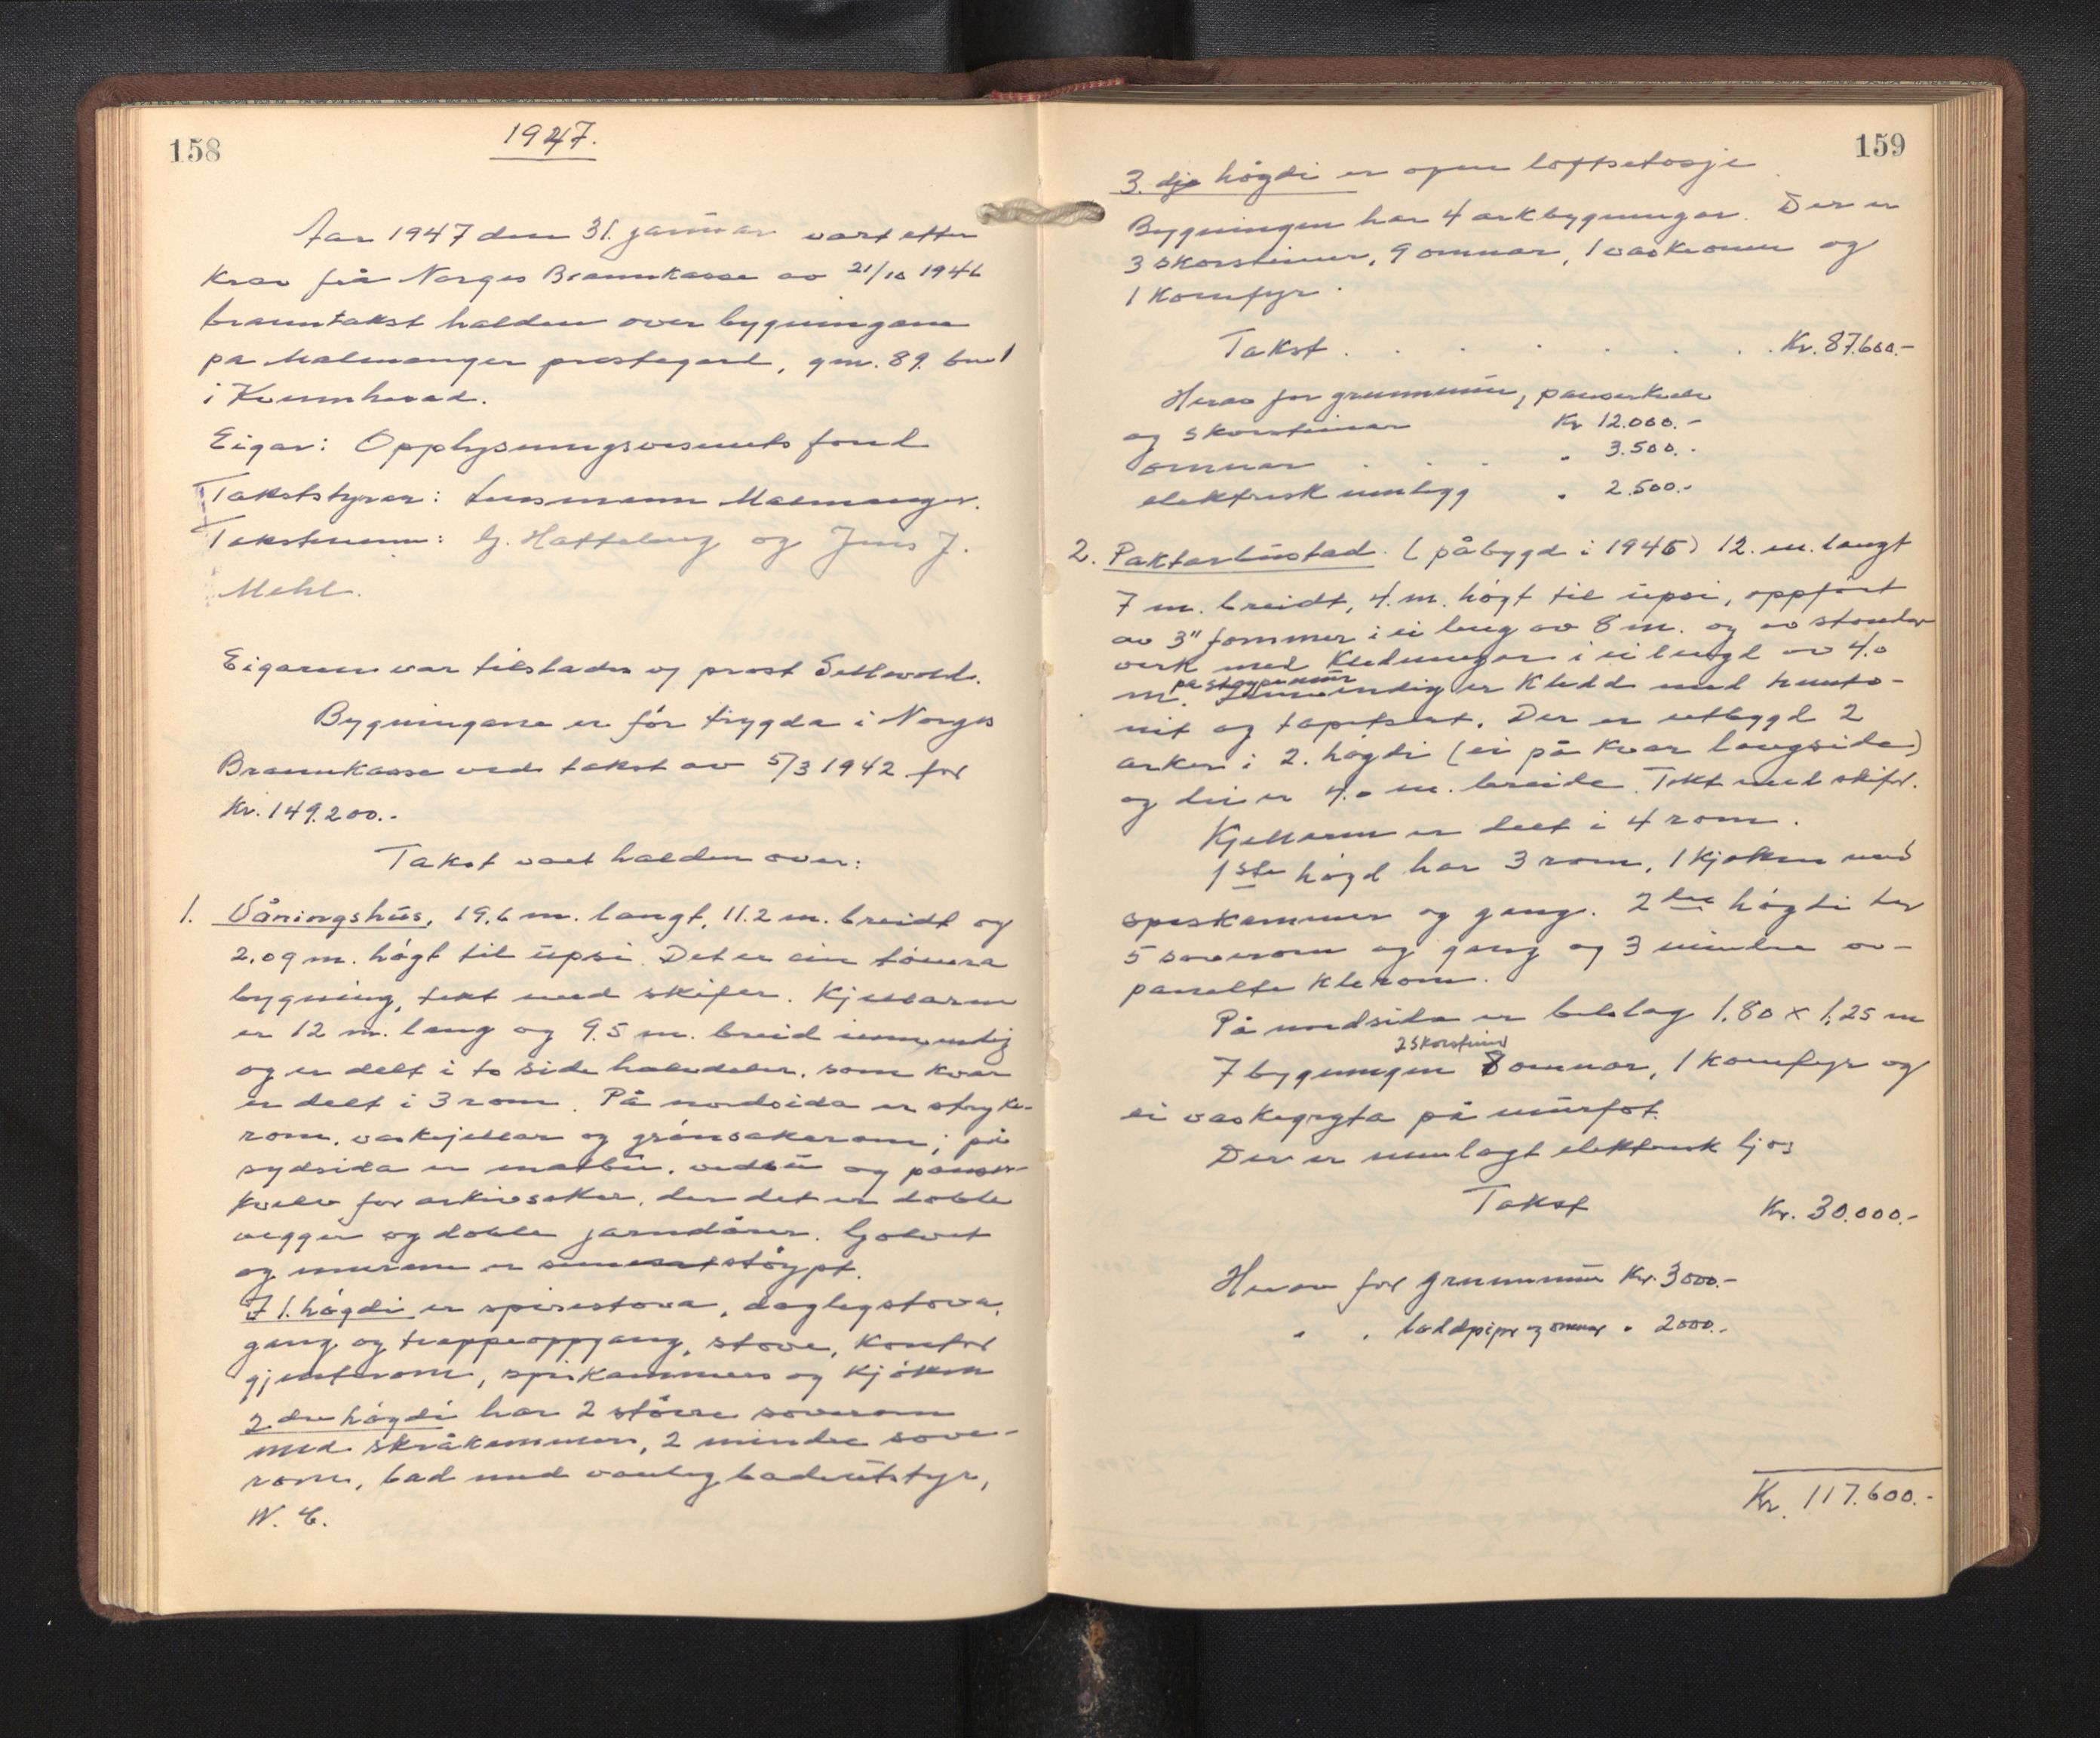 158
1947.
Aar 1947 den 31. januar vart etter
krav frå Norges Brannkasse av 21/10 1946
branntakst halden over bygningane
på Malmanger prestegard, gnr. 89. bnr 1
i Kvinnherad.
Eigar: Opplysningsvesenets fond
Takststyrar: Lensmann Malmanger.
Takstmenn: G. Hatteberg og Jens J.
Mehl.
Eigaren var tilstades v/ prost Sellevold.
Bygningane er før trygda i Norges
Brannkasse ved takst av 5/3 1942 for
Kr. 149.200.-
Takst vart halden over:
1. Våningshus, 19,6 m. langt, 11.2 m. breidt og
2.09 m. høgt til upsi. Det er ein tømra
bygning, tekt med skifer. Kjellaren
er 12 m. lang og 9.5 m. breid innvendig
og er delt i to side halvdeler, som kvar
er delt i 3 rom. På nordsida er stryke-
rom, vaskjellar og grønsakerom; på
sydsida er matbu, vedbu og panser-
kvelv for arkivsaker, der det er doble
vegger og doble jarndører. Golvet
og murene er sementstøypt.
I 1. høgdi er spisestova, daglegstova,
gang og trappeoppgang, stove, kontor
gjenterom, spiskammers og kjøken
2 dre høgdi har 2 større soverom
med skråkammer, 2 mindre sove-
rom, bad med vanleg badeutstyr,
W. C.
159
3. dje høgdi er open loftsetasje
Bygningen har 4 arkbygningar. Der er
3 skorsteiner, 9 omnar, 1 vaskeomn og
1 komfyr.
Takst . . . . . . . Kr. 87.600.-
Herav for grunnmur, panserkvelv
og skorsteinar Kr 12.000.-
omnar . . . " 3.500.-
elektrisk innlegg " 2.500.-
2. Paktarbustad. (påbygd i 1945) 12. m. langt
7 m. breidt, 4. m. høgt til upsi, oppført
av 3" tømmer i ei leng av 8 m. og av stender
verk med kledningar i ei lengd av 4.0
på støypemur
m. Innvendig er kledd med hunto-
nit og tapetsert. Der er utbygd 2
arker i 2. høgdi (ei på kvar langside)
og dei er 4.0 m. breide. Tekt med skifer.
Kjellaren er delt i 4 rom.
1ste høgd har 3 rom, 1 kjøken med
speskammer og gang. 2dre høgdi har
5 soverom og gang og 3 mindre av-
panelte klerom.
På nordsida er beslag 1,80 x 1,25 m
2 skorstein
I bygningen 8 omnar, 1 komfyr og
ei vaskegryta på murfot.
Der er innlagt elektrisk ljos
Takst Kr. 30.000.-
Herav for grunnmur Kr. 3000.-
" " loddpipe og omnar " 2000.-
Kr. 117.600.-